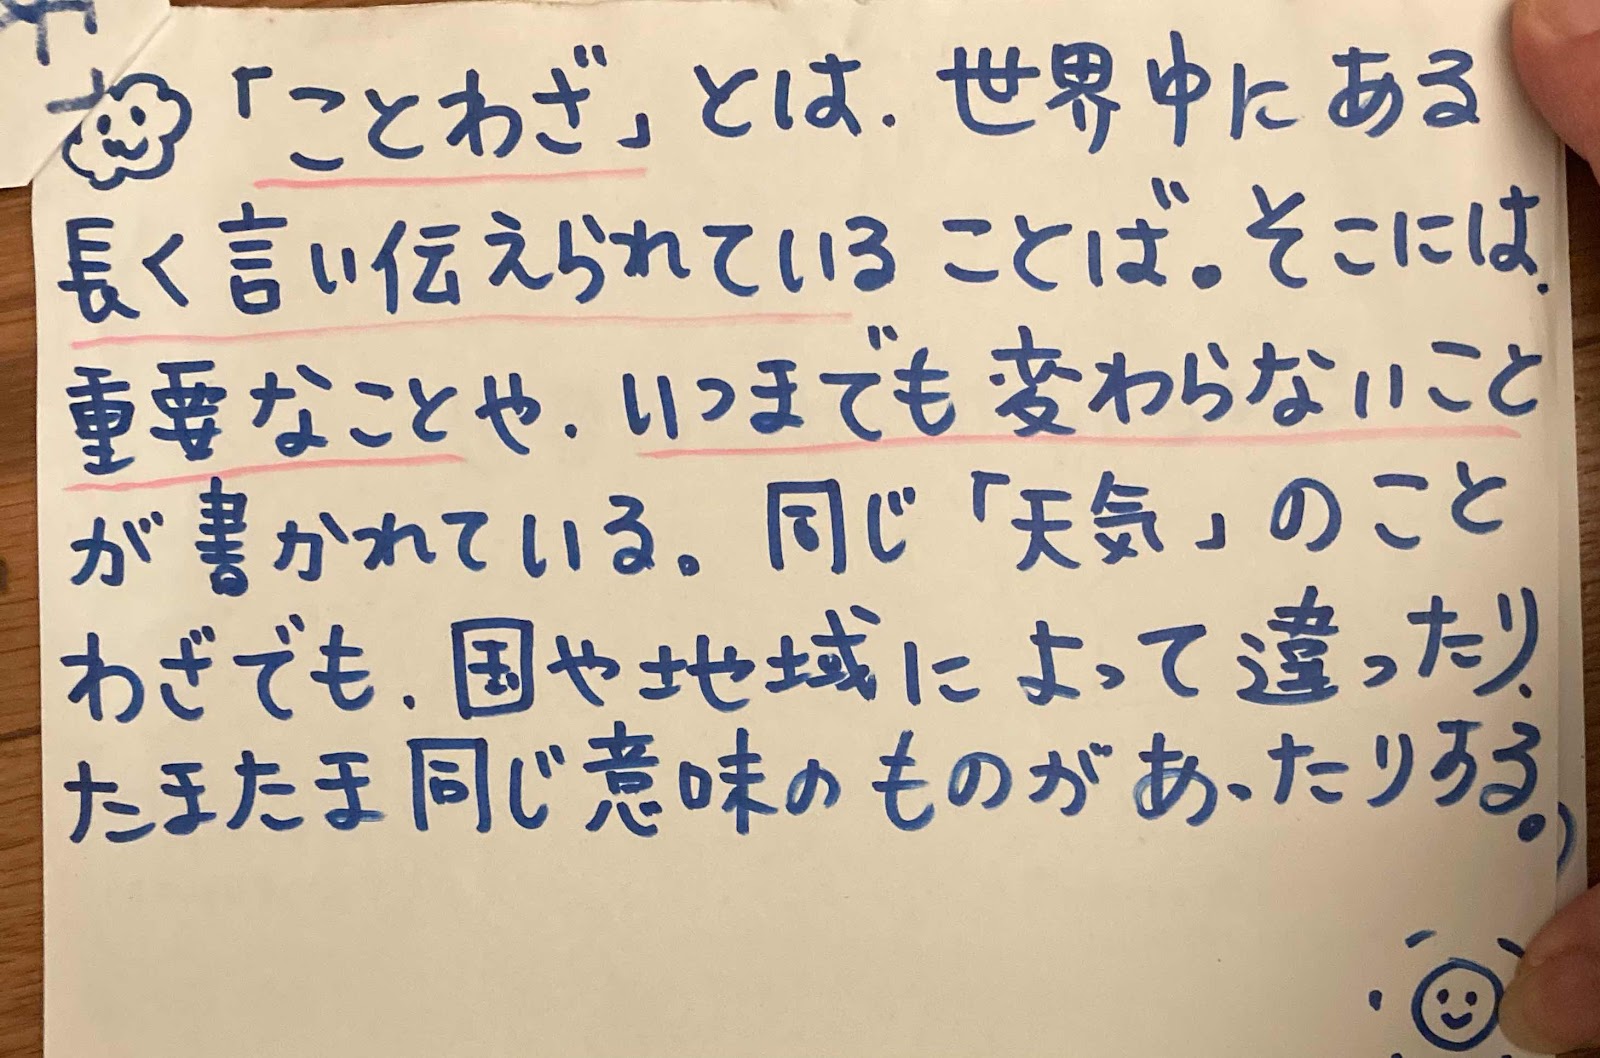 「ことわざ」とは、世界中にある
長く言い伝えられていることば。そこには、
重要なことや、いつまでも変わらないこと
が書かれている。同じ「天気」のこと
わざでも、国や地域によって違ったり、
たまたま同じ意味のものがあったりする。